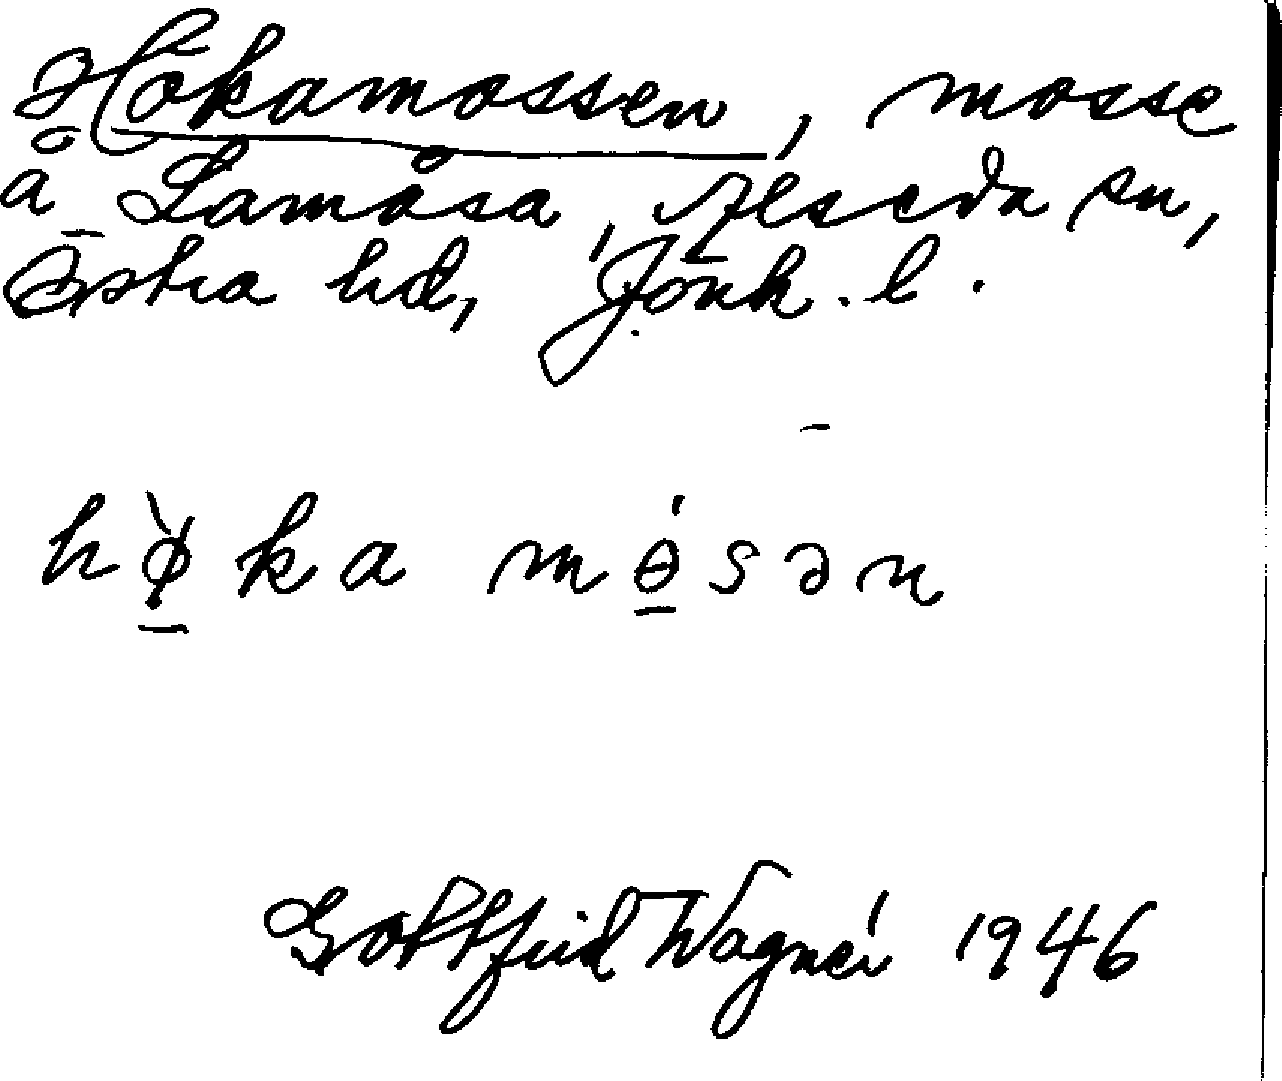 Hökamossen, mosse
å Lamåsa, Alseda sn,
Östra hd, Jönk. l.
hø̀ka mɵ́sən
Gottfrid Wagnér 1946